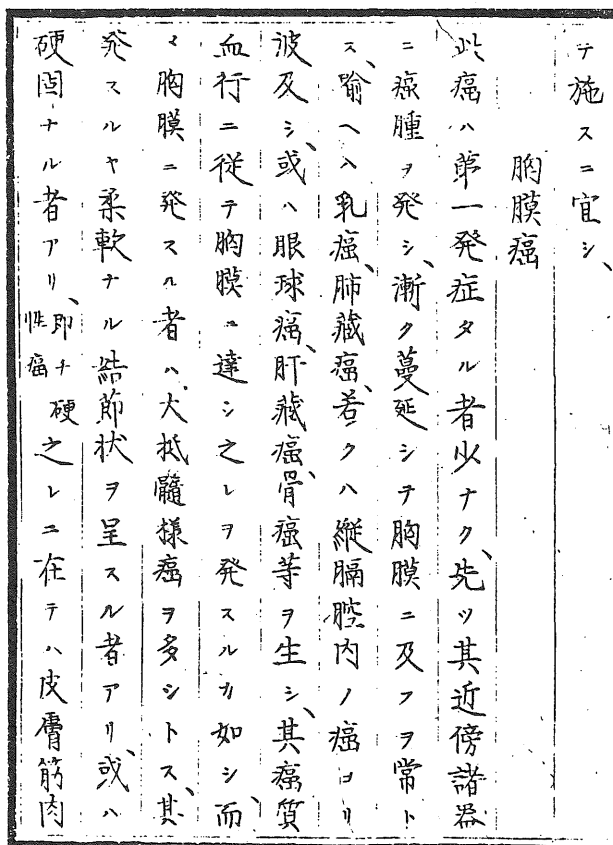 テ施スニ宜シ、
胸膜癌
此癌ハ第一発症タル者少ナク、先ツ其近傍諸器
ニ癌腫ヲ発シ、漸ク蔓延シテ胸膜ニ及フヲ常ト
ス、喩ヘハ乳癌、肺藏癌、若クハ縦膈腔内ノ癌ヨリ
波及シ、或ハ眼球癌、肝藏癌、骨癌等ヲ生シ、其癌質
血行ニ従テ胸膜ニ達シ之レヲ発スルカ如シ、而
メ胸膜ニ発スル者ハ、大抵髓様癌ヲ多シトス、其
発スルヤ柔軟ナル結節状ヲ呈スル者アリ、或ハ
硬固ナル者アリ、即チ硬性癌之レニ在テハ皮膚筋肉